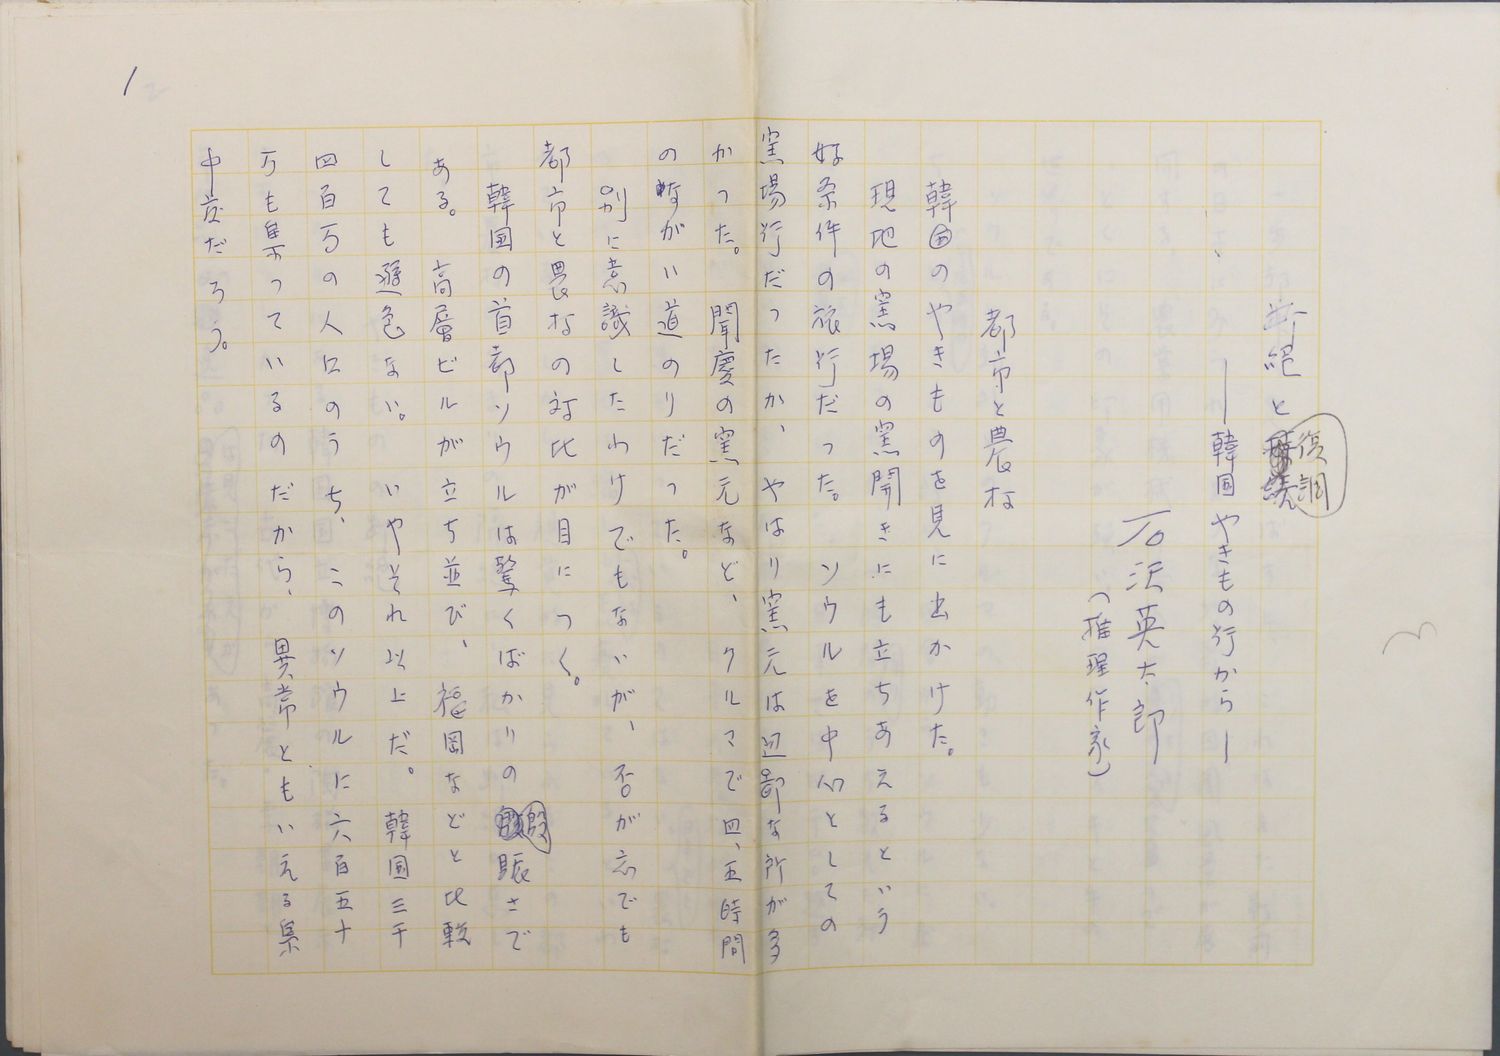 1
断絶と復調
―韓国やきもの行から―
石沢英太郎
(推理作家)
都市と農村
韓国のやきものを見に出かけた。
現地の窯場の窯開きにも立ちあえるという
好条件の旅行だった。ソウルを中心としての
窯場行だったが、やはり窯元は辺鄙な所が多
かった。聞慶の窯元など、クルマで四、五時間
の長い道のりだった。
別に意識したわけでもないが、否が応でも
都市と農村の対比が目につく。
韓国の首都ソウルは驚くばかりの殷賑さで
ある。高層ビルが立ち並び、福岡などと比較
しても遜色ない。いやそれ以上だ。韓国三千
四百万の人口のうち、このソウルに六百五十
万も集っているのだから、異常ともいえる集
中度だろう。